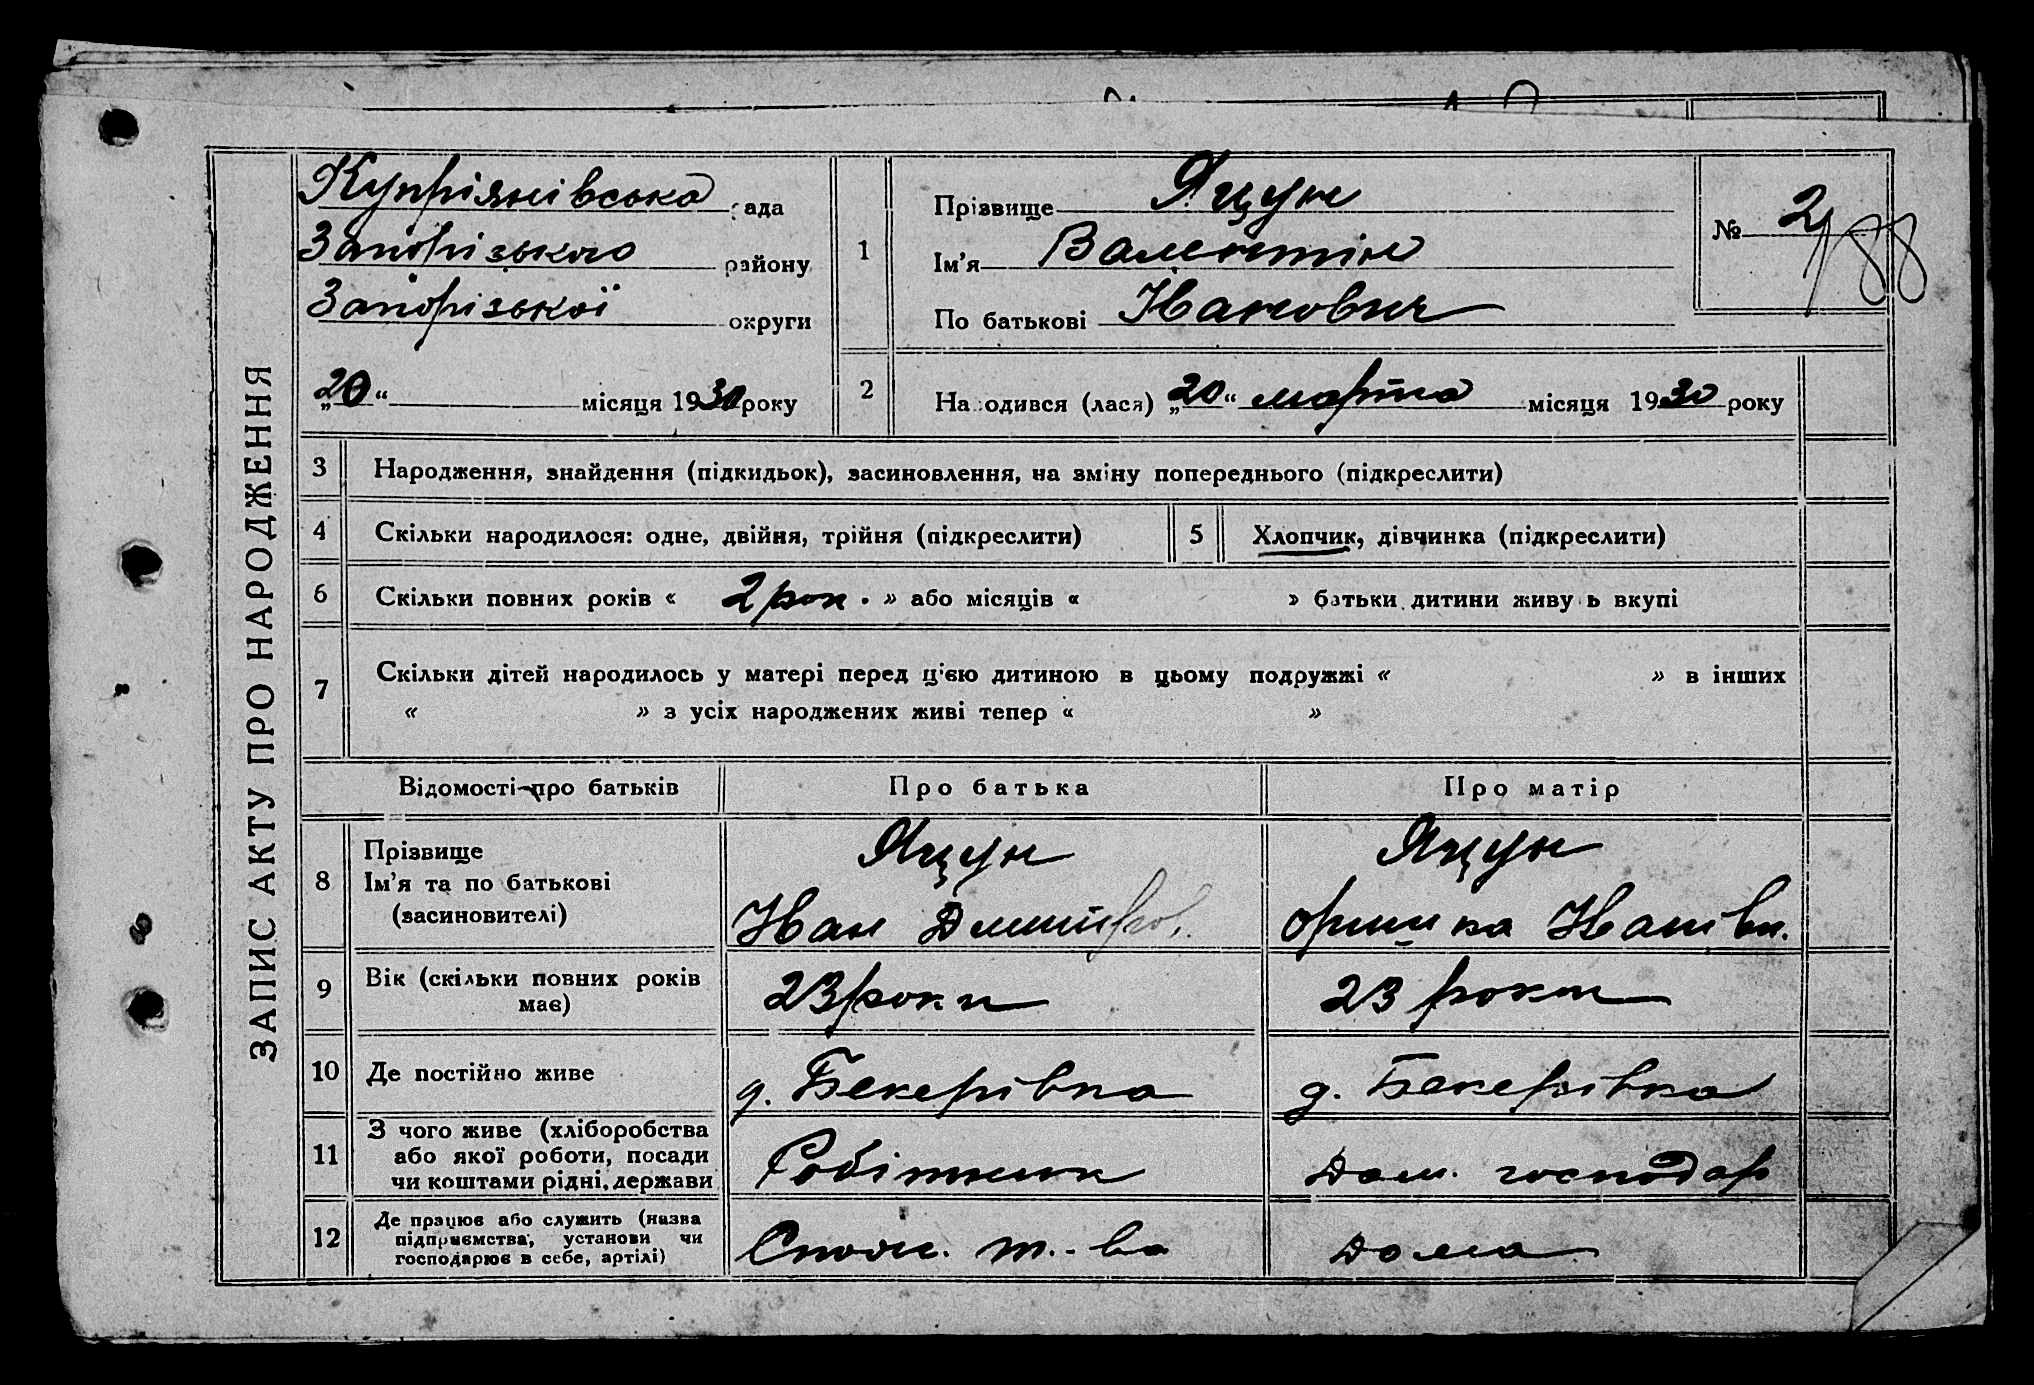 ЗАПИС АКТУ ПРО НАРОДЖЕННЯ
Купріянівська рада
Запорізького району
Запорізької округи
„20“ місяця 1930 року
1
Прізвище Яцун
Ім'я Валентін
По батькові Иванович
№ 2/188
2
Народився (лася) „20“ марта місяця 1930 року
3 Народження, знайдення (підкидьок), засиновлення, на зміну попереднього (підкреслити)
4 Скільки народилося: одне, двійня, трійня (підкреслити)
5 Хлопчик, дівчинка (підкреслити)
6 Скільки повних років « 2 рок. » або місяців « » батьки дитини живуть вкупі
7 Скільки дітей народилось у матері перед цією дитиною в цьому подружжі « » в інших
« » з усіх народжених живі тепер « »
Відомості про батьків Про батька Про матір
8 Прізвище
Ім'я та по батькові
(засиновителі)
Яцун
Иван Дмитров.
Яцун
Оришка Иванівн.
9 Вік (скільки повних років
має)
23 роки
23 роки
10 Де постійно живе
д. Бекерівка
д. Бекерівка
11 З чого живе (хліборобства
або якої роботи, посади
чи коштами рідні, держави
Робітник
Дом. господар
12 Де працює або служить (назва
підприємства, установи чи
господарює в себе, артілі)
Спож. т-во
Дома